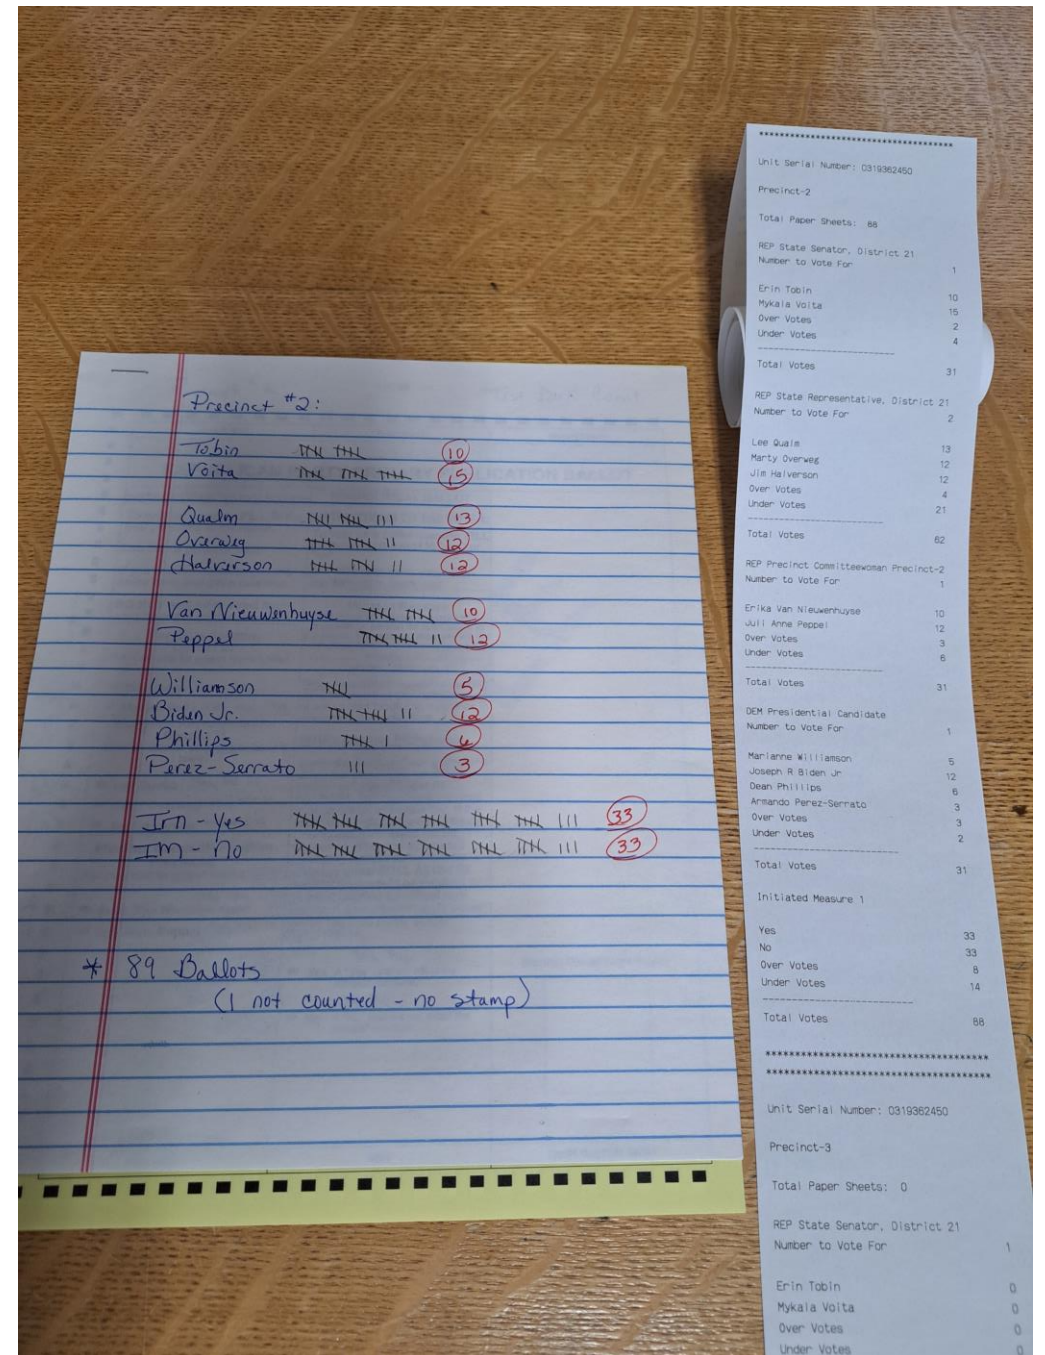 Precinct #2:
Tobin 10
Voita 15
Qualm 13
Overweg 12
Halverson 12
Van Nieuwenhuyse 10
Peppel 12
Williamson 5
Biden Jr. 12
Phillips 6
Perez-Serrato 3
Im - Yes 33
IM - no 33
* 89 Ballots
(1 not counted - no stamp)
****************************************
Unit Serial Number: 0319362450
Precinct-2
Total Paper Sheets: 88
REP State Senator, District 21
Number to Vote For 1
Erin Tobin 10
Mykala Voita 15
Over Votes 2
Under Votes 4
Total Votes 31
REP State Representative, District 21
Number to Vote For 2
Lee Qualm 13
Marty Overweg 12
Jim Halverson 12
Over Votes 4
Under Votes 21
Total Votes 62
REP Precinct Committeewoman Precinct-2
Number to Vote For 1
Erika Van Nieuwenhuyse 10
Juli Anne Peppel 12
Over Votes 3
Under Votes 6
Total Votes 31
DEM Presidential Candidate
Number to Vote For 1
Marianne Williamson 5
Joseph R Biden Jr 12
Dean Phillips 6
Armando Perez-Serrato 3
Over Votes 3
Under Votes 2
Total Votes 31
Initiated Measure 1
Yes 33
No 33
Over Votes 8
Under Votes 14
Total Votes 88
****************************************
****************************************
Unit Serial Number: 0319362450
Precinct-3
Total Paper Sheets: 0
REP State Senator, District 21
Number to Vote For 1
Erin Tobin 0
Mykala Voita 0
Over Votes 0
Under Votes 0